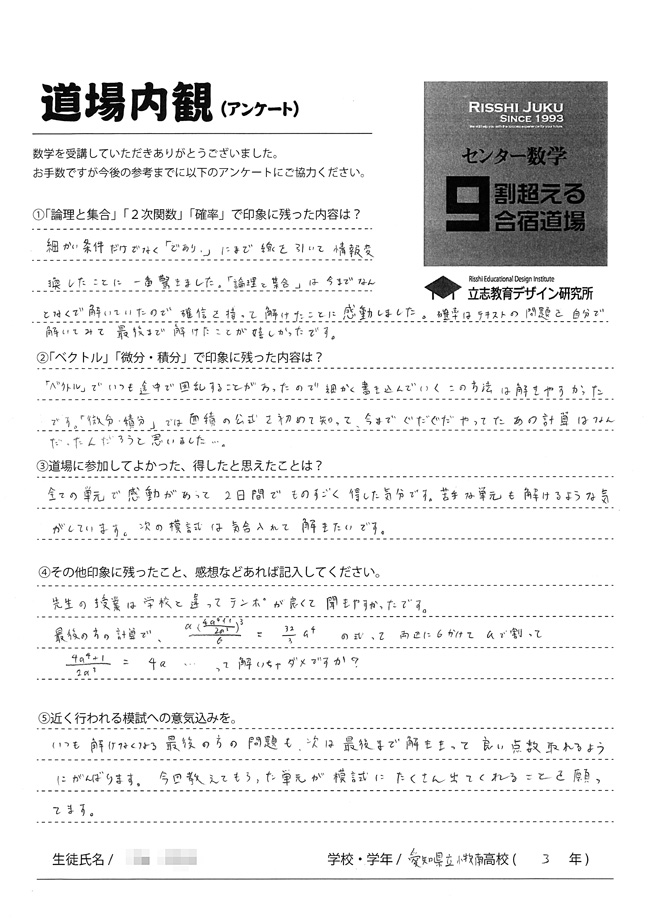 道場内観(アンケート)
RISSHI JUKU
SINCE 1993
センター数学
9割超える
合宿道場
Risshi Educational Design Institute
立志教育デザイン研究所
数学を受講していただきありがとうございました。
お手数ですが今後の参考までに以下のアンケートにご協力ください。
①「論理と集合」「2次関数」「確率」で印象に残った内容は?
細かい条件だけでなく「であり、」にまで線を引いて情報変
換したことに一番驚きました。「論理と集合」は今までなん
となくで解いていたので確信を持って解けたことに感動しました。確率はテキストの問題を自分で
解いてみて最後まで解けたことが嬉しかったです。
②「ベクトル」「微分・積分」で印象に残った内容は?
「ベクトル」でいつも途中で困乱することがあったので細かく書き込んでいくこの方法は解きやすかった
です。「微分・積分」では面積の公式を初めて知って、今までぐだぐだやってたあの計算はなん
だったんだろうと思いました…。
③道場に参加してよかった、得したと思えたことは?
全ての単元で感動があって2日間でものすごく得した気分です。苦手な単元も解けるような気
がしています。次の模試は気合入れて解きたいです。
④その他印象に残ったこと、感想などあれば記入してください。
先生の授業は学校と違ってテンポが良くて聞きやすかったです。
最後の方の計算で、 a((4a⁴+1)/2a³)³/6 = 32/3 a⁴ の式って両辺に6かけてaで割って
(4a⁴+1)/2a³ = 4a … って解いちゃダメですか?
⑤近く行われる模試への意気込みを。
いつも解けなくなる最後の方の問題も、次は最後まで解ききって良い点数取れるよう
にがんばります。今回教えてもらった単元が模試にたくさん出てくれることを願っ
てます。
生徒氏名/ 学校・学年/愛知県立小牧南高校( 3 年)